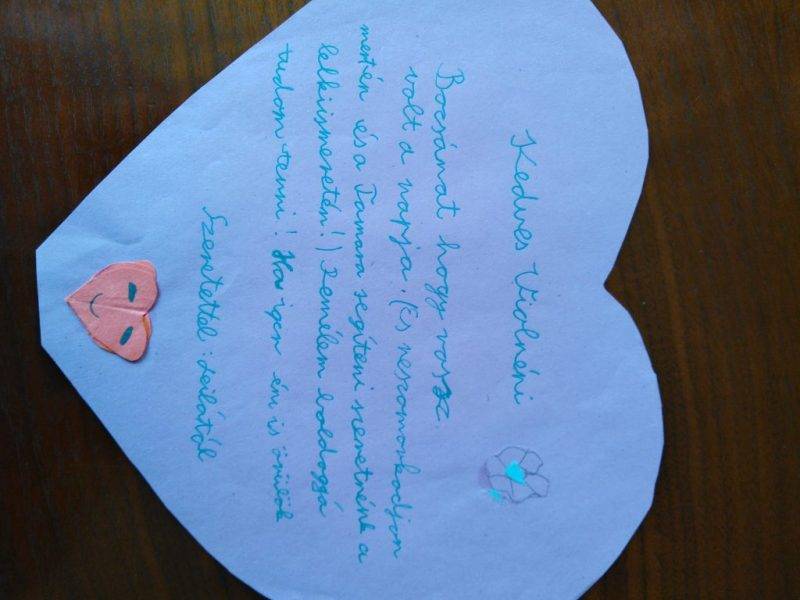 Kedves Violnéni
Bocsánat hogy rossz
volt a napja. (És neszomorkodjon
mert én és a Tamara segíteni szeretnénk a
lelkiismeretén!) Remélem boldoggá
tudom tenni! Ha igen én is örülök
Szeretettel: Leilától